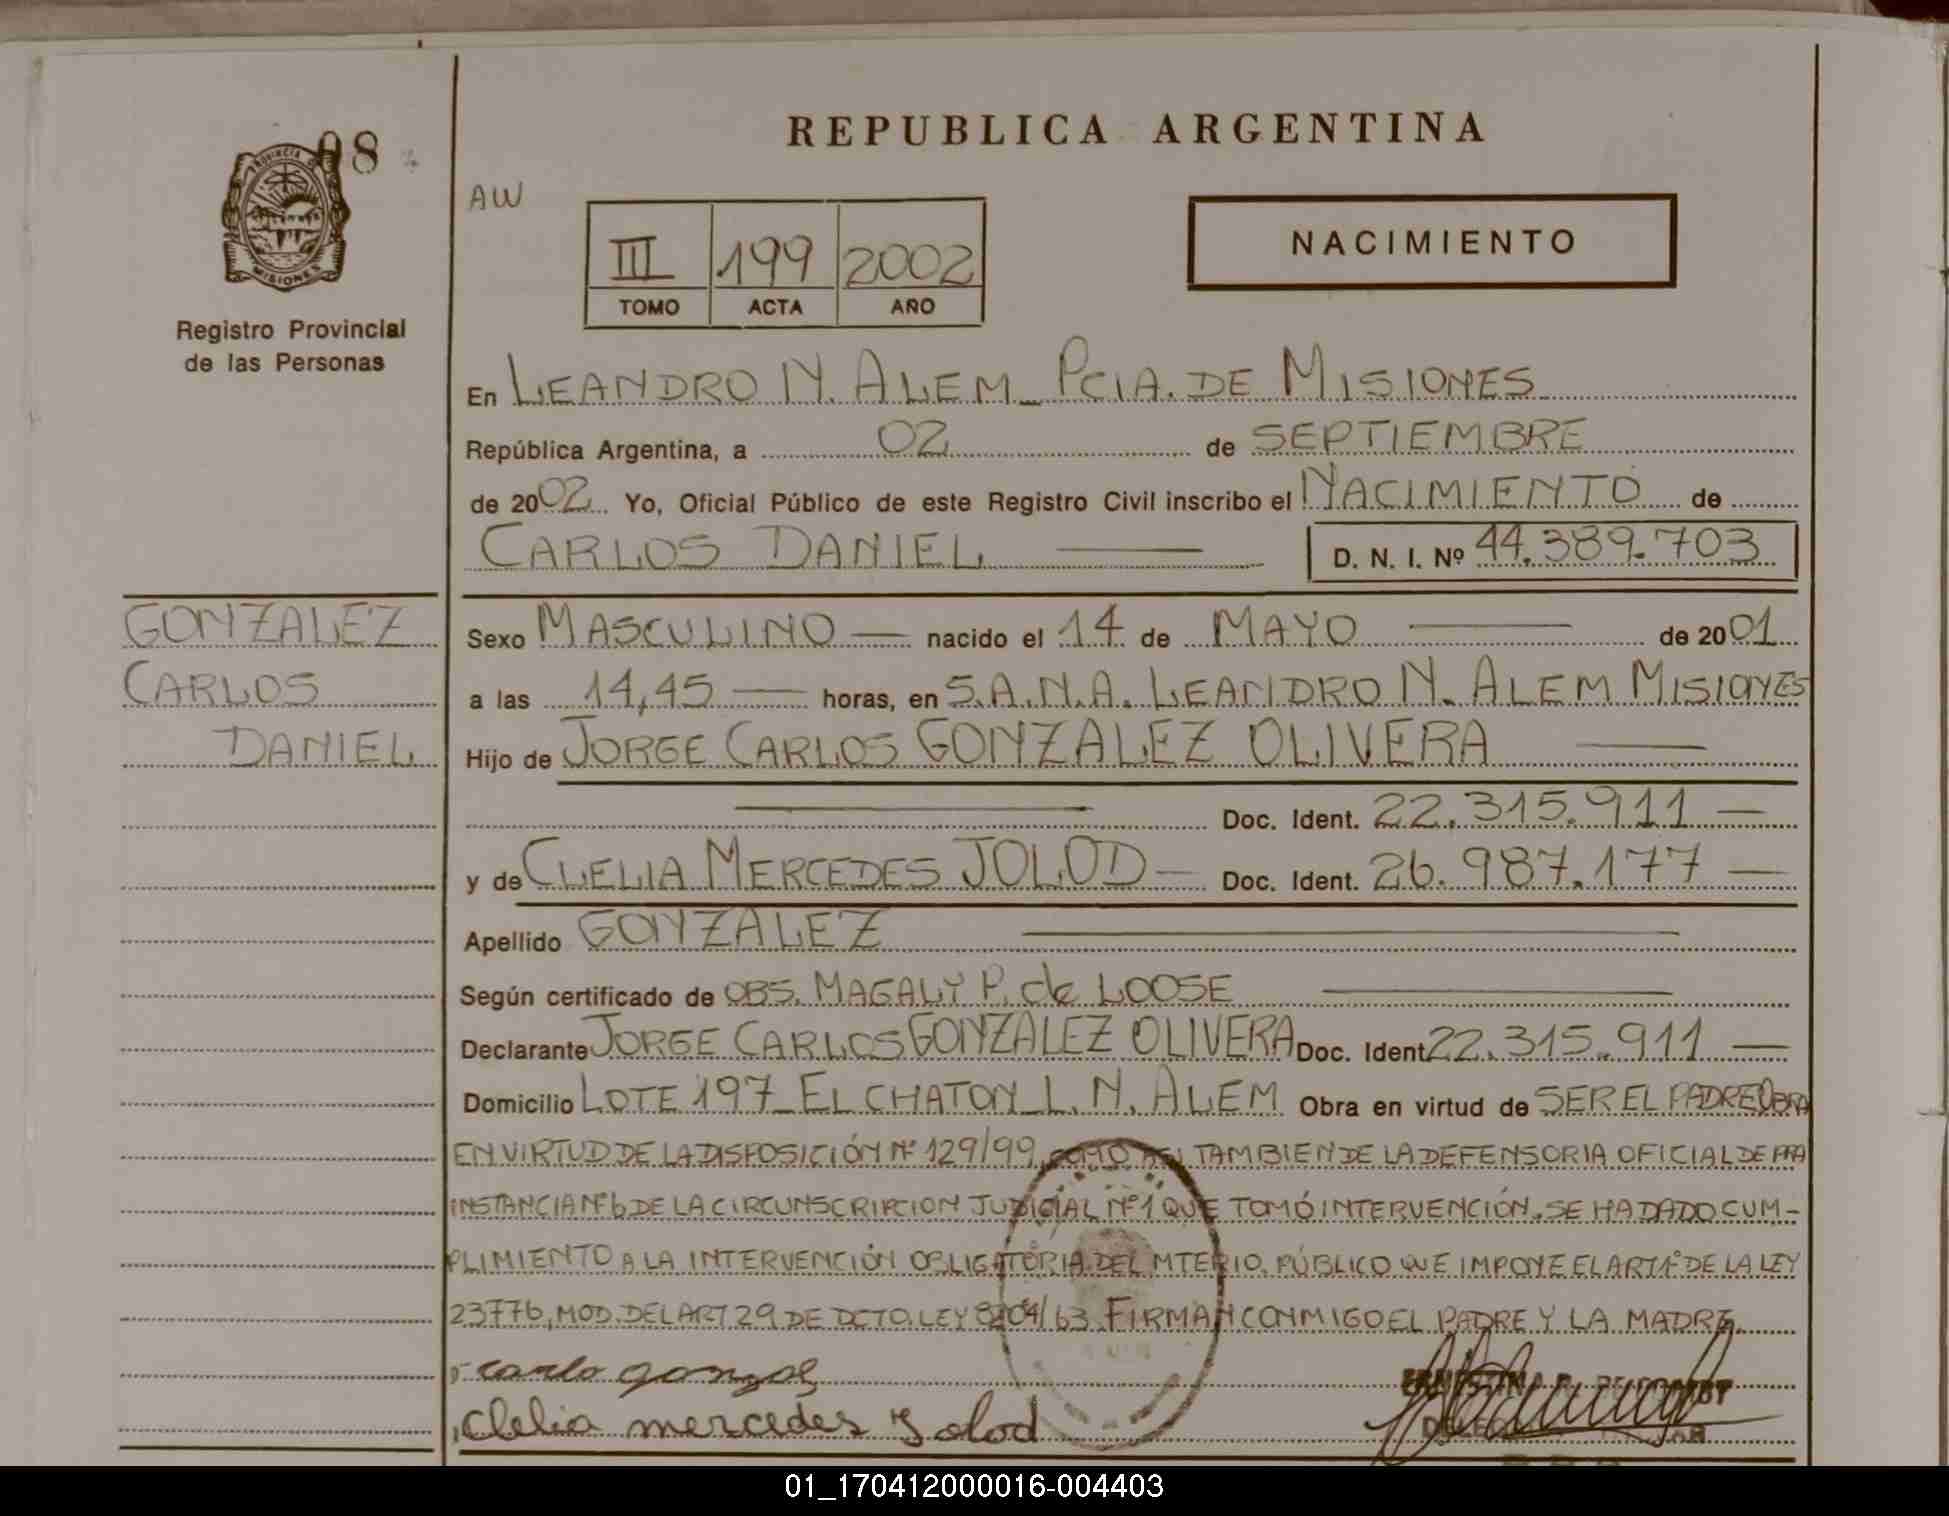 98
PROVINCIA DE
MISIONES
Registro Provincial
de las Personas
REPUBLICA ARGENTINA
AW
III 199 2002
TOMO ACTA AÑO
NACIMIENTO
En LEANDRO N. ALEM_ PCIA. DE MISIONES
República Argentina, a 02 de SEPTIEMBRE
de 2002 Yo, Oficial Público de este Registro Civil inscribo el NACIMIENTO de
CARLOS DANIEL — D. N. I. Nº 44.389.703
GONZALEZ
CARLOS
DANIEL
Sexo MASCULINO — nacido el 14 de MAYO — de 2001
a las 14,45 — horas, en S.A.N.A. LEANDRO N. ALEM MISIONES
Hijo de JORGE CARLOS GONZALEZ OLIVERA —
— Doc. Ident. 22.315.911 —
y de CLELIA MERCEDES JOLOD — Doc. Ident. 26.987.177 —
Apellido GONZALEZ —
Según certificado de OBS. MAGALY P. de LOOSE —
Declarante JORGE CARLOS GONZALEZ OLIVERA Doc. Ident 22.315.911 —
Domicilio LOTE 197_ EL CHATON_ L. N. ALEM Obra en virtud de SER EL PADRE OBRA
EN VIRTUD DE LA DISPOSICIÓN Nº 129/99, COMO ASI TAMBIEN DE LA DEFENSORIA OFICIAL DE PRA
INSTANCIA Nº 6 DE LA CIRCUNSCRIPCION JUDICIAL Nº 1 QUE TOMÓ INTERVENCIÓN. SE HA DADO CUM-
PLIMIENTO A LA INTERVENCIÓN OBLIGATORIA DEL MTERIO. PÚBLICO QUE IMPONE EL ART 1º DE LA LEY
23776, MOD. DEL ART 29 DE DCTO. LEY 8204/63. FIRMAN CONMIGO EL PADRE Y LA MADRE.
carlo gonzalez
Clelia mercedes Jolod
01_170412000016-004403